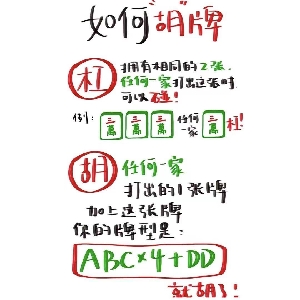 如何"胡"牌
杠 拥有相同的2张
任何一家打出这张时
可以碰!
例: 三萬 三萬 三萬 任何一家 三萬 杠!
胡 任何一家
打出的1张牌
加上这张牌
你的牌型是:
ABC×4+DD
就胡了!